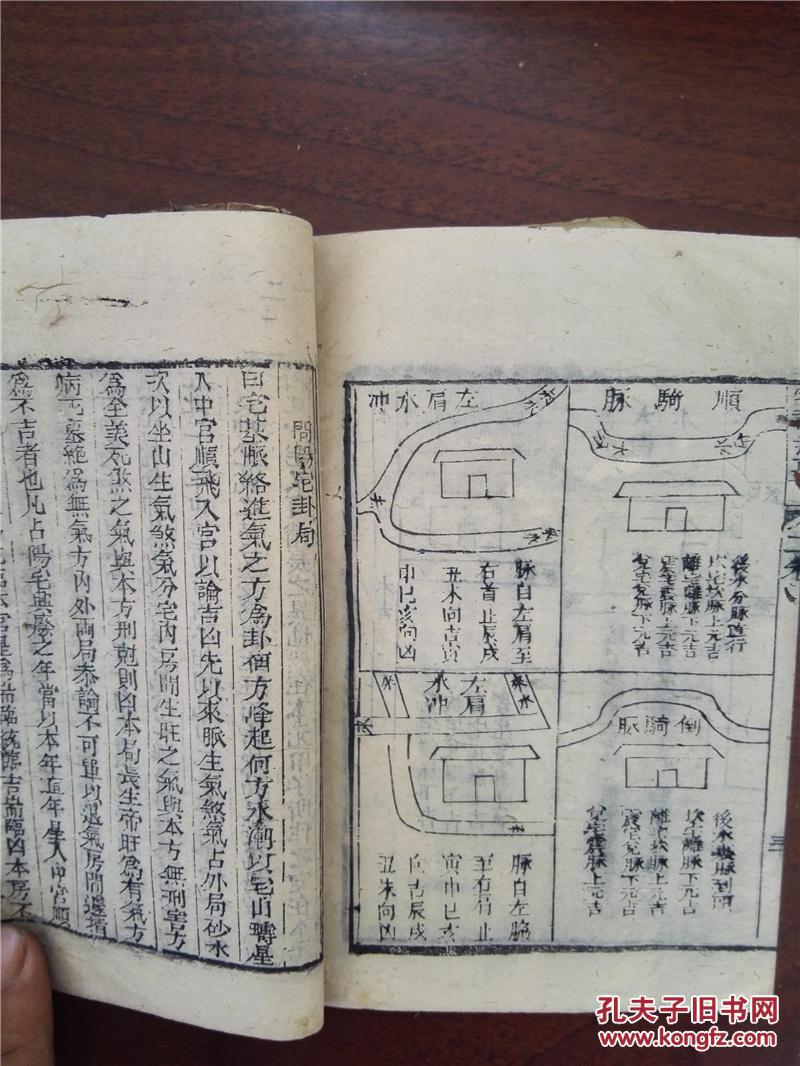 順騎脈
後水分脈直行
坎宅坎脈上元吉
離宅離脈下元吉
震宅震脈上元吉
兌宅兌脈下元吉
左肩水冲
脈自左肩至
右首止辰戌
丑未向吉寅
申巳亥向凶
倒騎脈
坎宅離脈下元吉
離宅坎脈上元吉
震宅兌脈下元吉
兌宅震脈上元吉
左肩
水冲
脈自左脇
至右肩止
寅申巳亥
向吉辰戌
丑未向凶
三
問陽宅卦局
曰宅基脈絡進氣之方為卦何方峰起何方水潮以宅山疇星
入中宮順飛八宮以論吉凶先以來脈生氣煞氣占外局砂水
次以坐山生氣煞氣分宅內房間生旺之氣與本方無刑害方
為全美死煞之氣與本方刑剋則凶本局長生帝旺為有氣方
病死墓絕為無氣方內外兩局叅論不可單以退氣房間邊堵
為不吉者也凡占陽宅興廢之年當以本年直年星入中宮順
孔夫子旧书网
www.kongfz.com